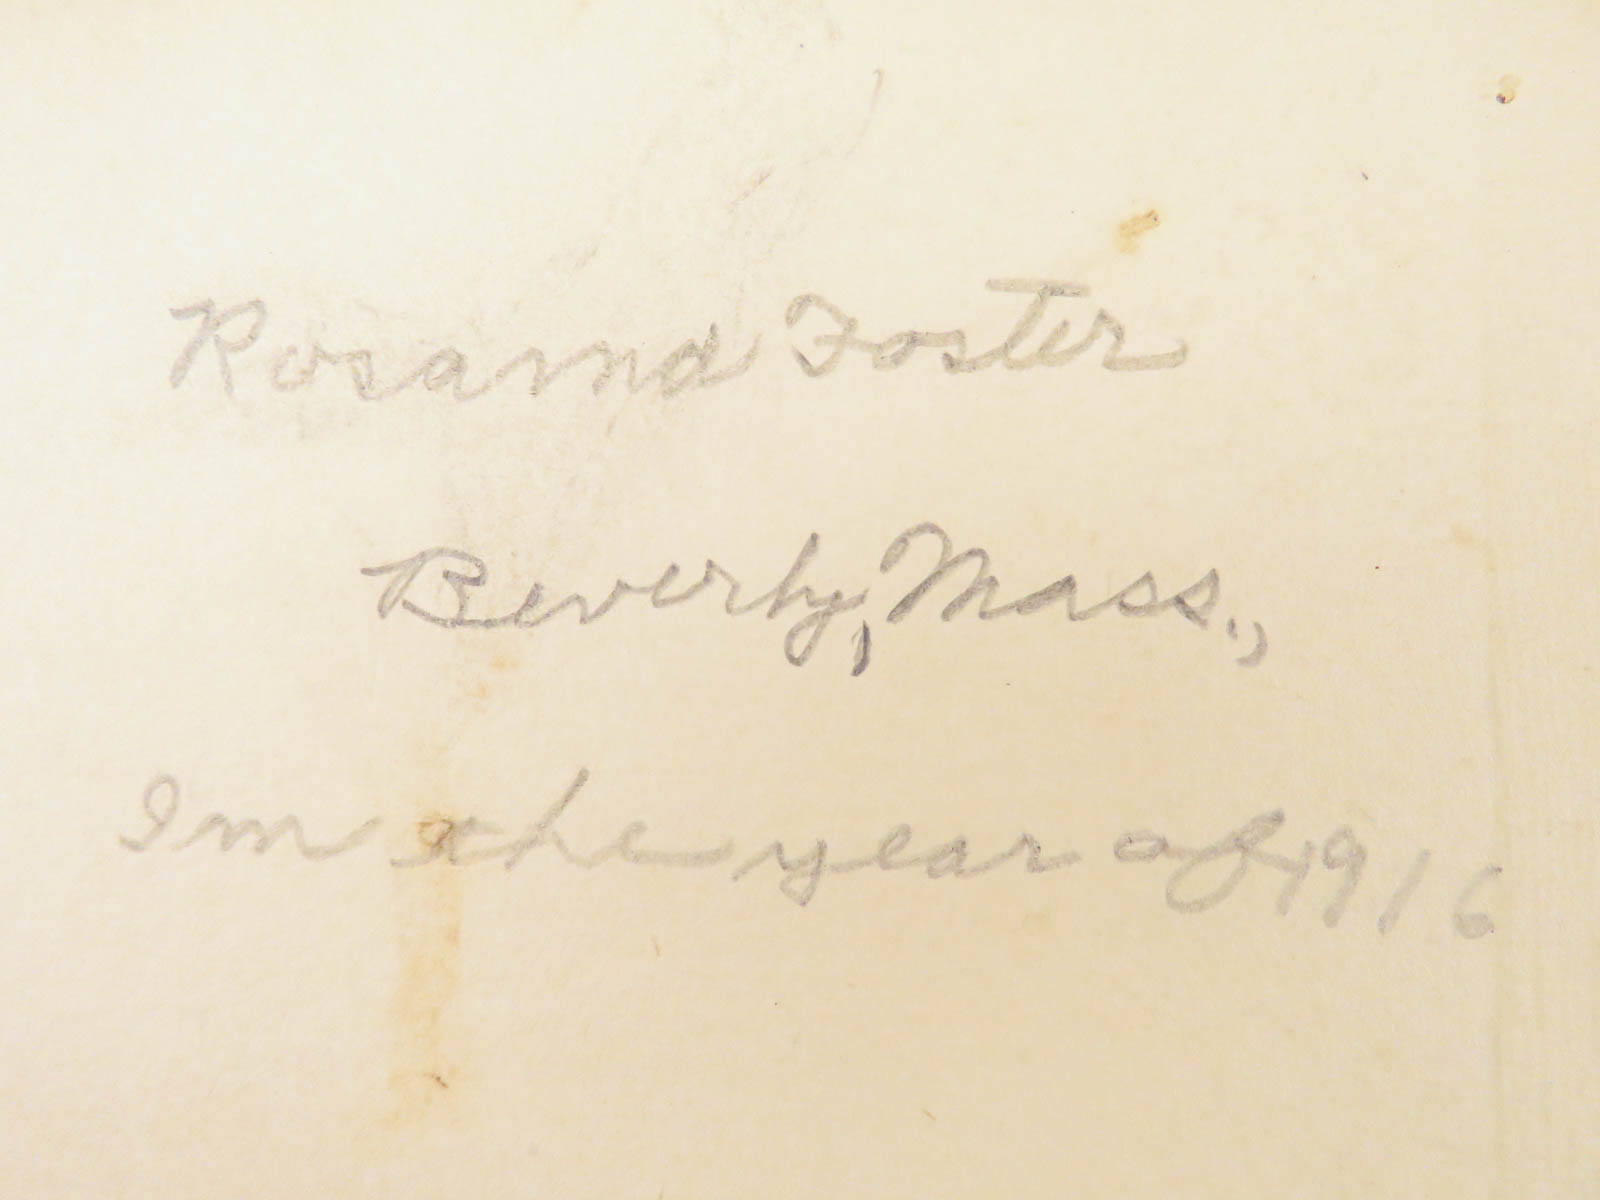 Rosamd Foster
Beverly, Mass.,
In the year of 1916